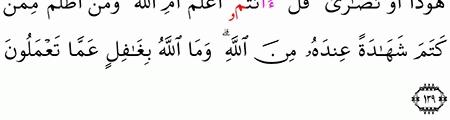 هُودًا أَوْ نَصَـٰرَىٰ قُلْ ءَآنتُمُۥ أَعْلَمُ أَمِ اِ۬للَّهُ وَمَنْ أَظْلَمُ مِمَّن
كَتَمَ شَهَـٰدَةً عِندَهُۥ مِنَ اَ۬للَّهِۗ وَمَا اَ۬للَّهُ بِغَـٰفِلٍ عَمَّا تَعْمَلُونَ
١٣٩